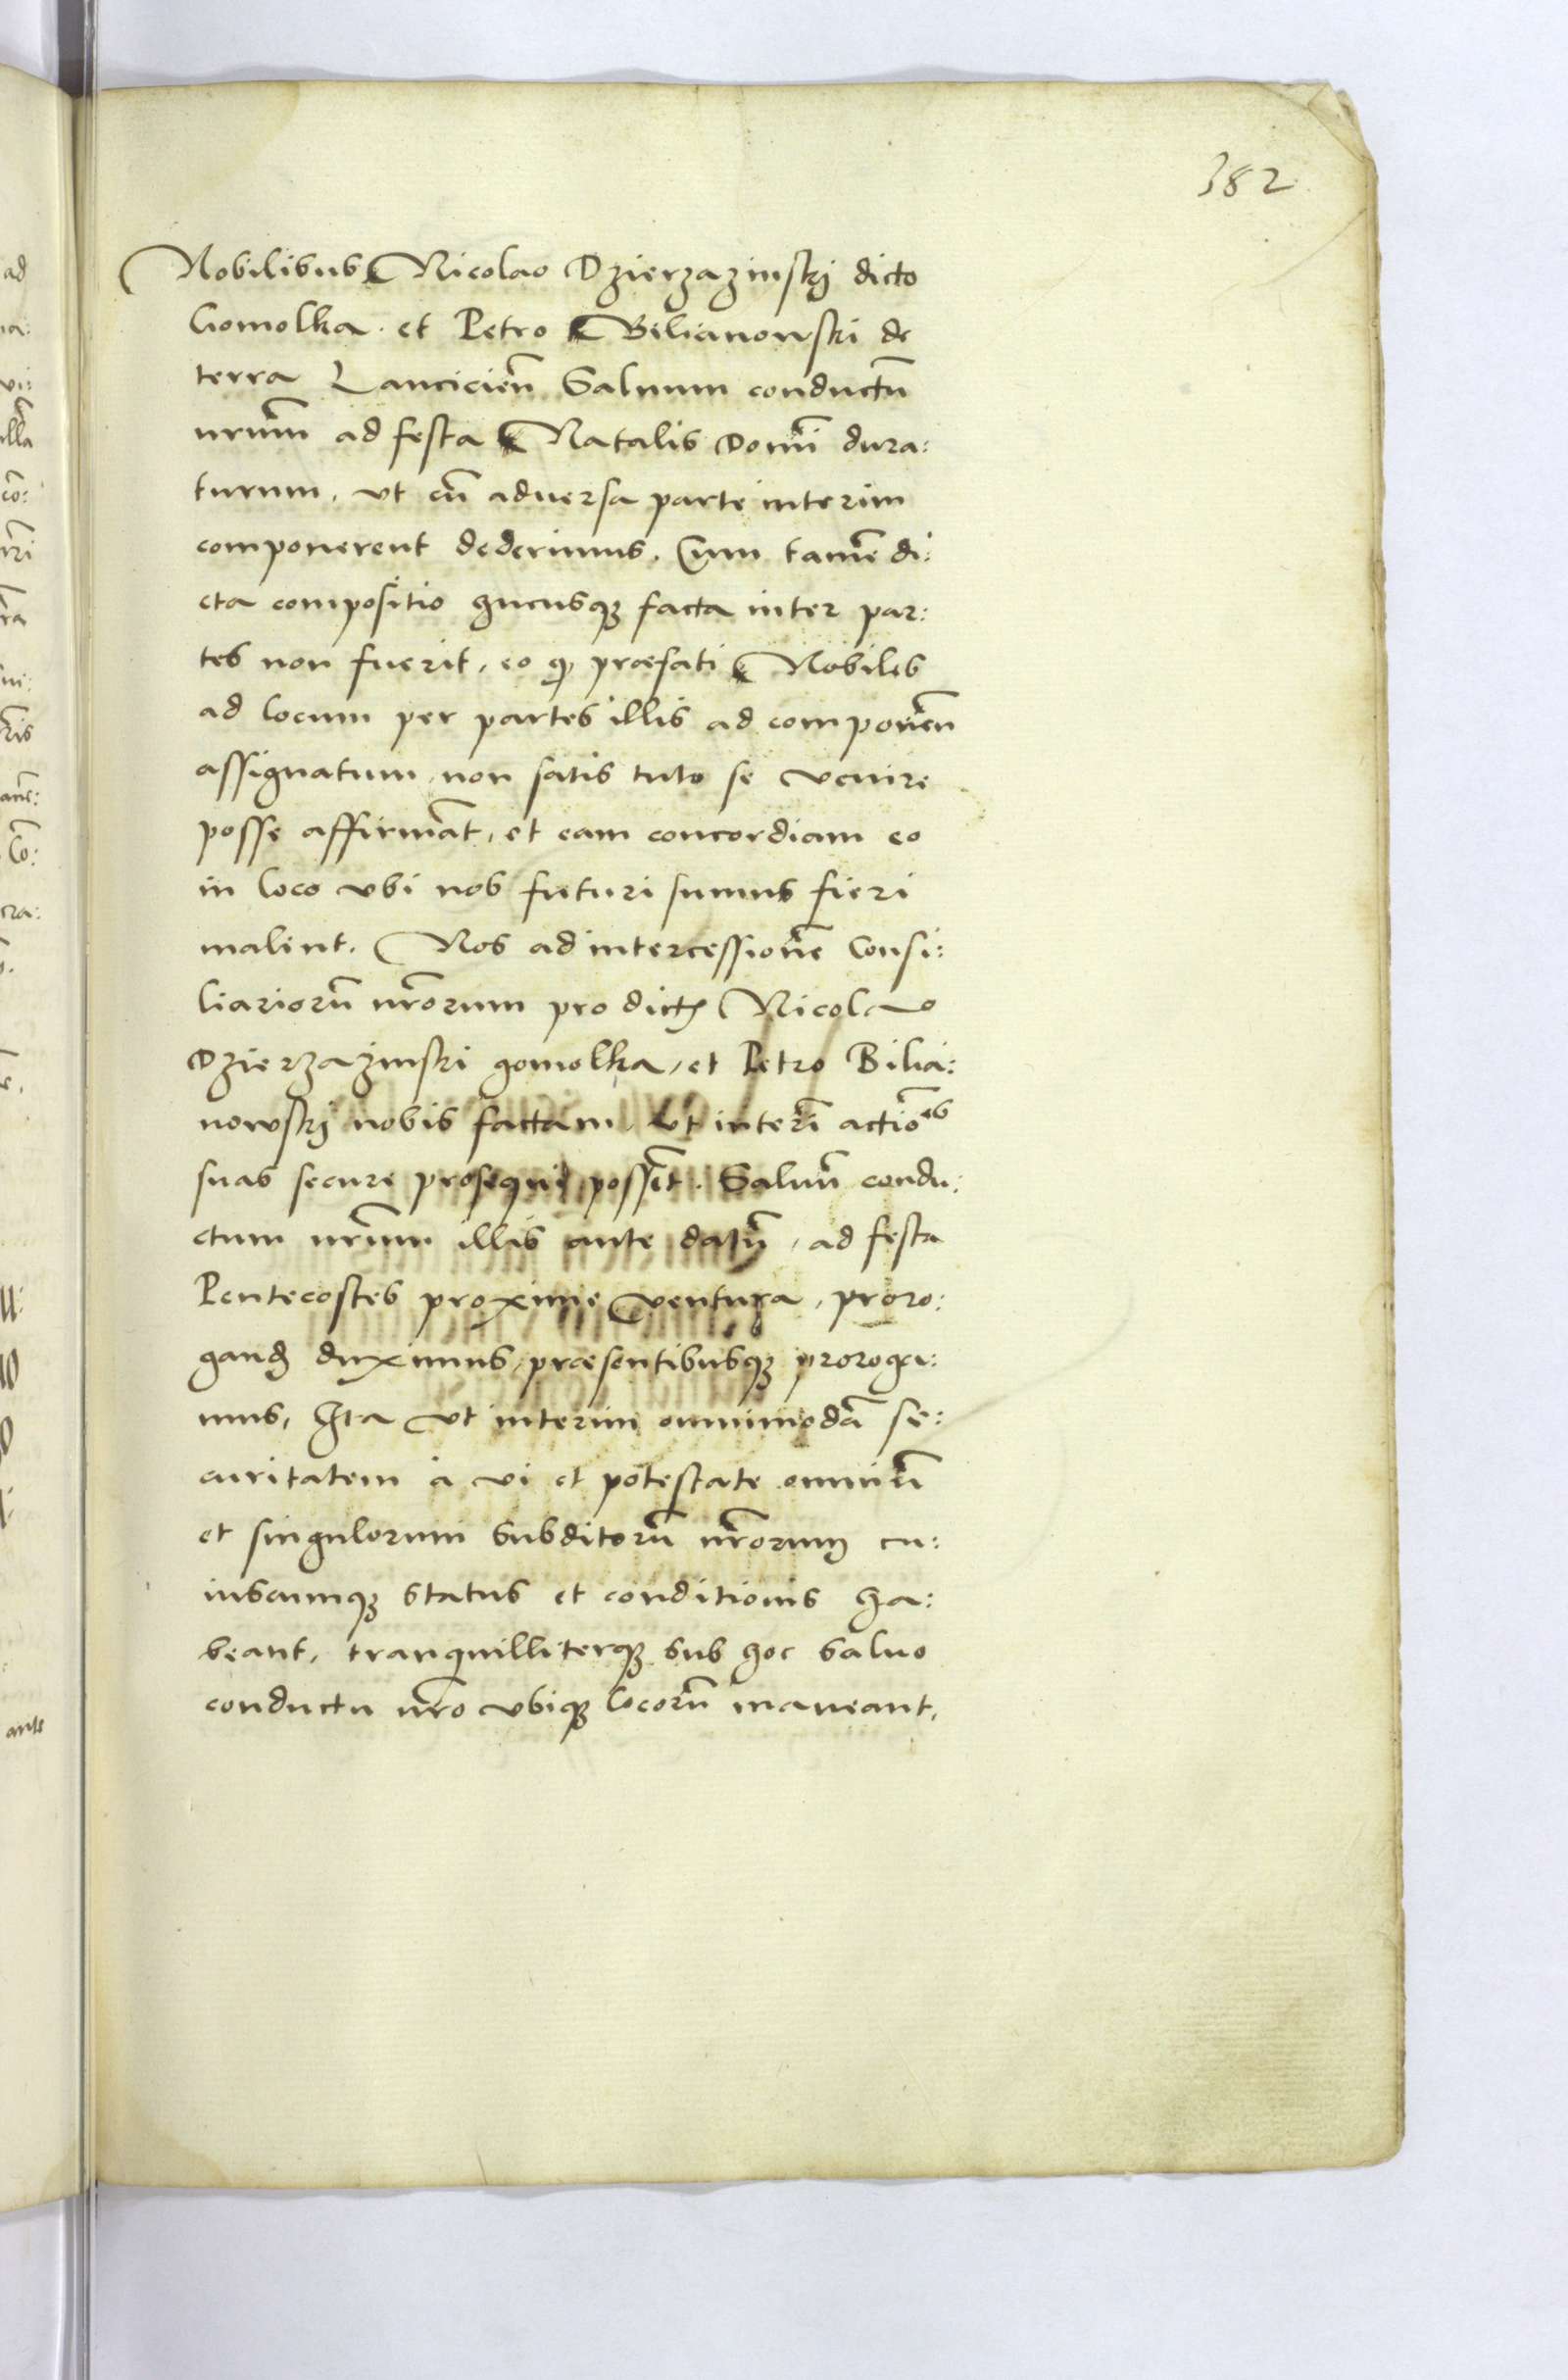 382
Nobilibus Nicolao Dzierzazinskj dicto
Gomolka. et Petro Bilianowski de
terra Lancicien̄ Saluum conductū
nr̄um ad festa Natalis Domī dura:
turum, vt cū aduersa parte interim
componerent dederimus. Cum tamē di:
cta compositio hucusq̨ facta inter par:
tes non fuerit, eo q̨ præfati Nobiles
ad locum per partes illis ad componēn
assignatum, non satis tuto se venire
posse affirmāt, et eam concordiam eo
in loco vbi nos futuri sumus fieri
malint. Nos ad intercessionē Consi:
liariorū nr̄orum pro dictis Nicolao
Dzierzazinski gomolka, et Petro Bilia:
nowskj nobis factam, vt interī actiōes
suas secure prosequi possēt. Saluū condu:
ctum nr̄um illis ante datū, ad festa
Pentecostes proxime ventura, proro:
gand̨ duximus, præsentibusq̨ proroga:
mus, Ita vt interim omnimodā se:
curitatem à vi et potestate omniū
et singulorum subditorū nr̄orum cu:
iuscumq̨ status et conditionis ha:
beant, tranquilliterq̨ sub hoc saluo
conductu nr̄o vbiq̨ locorū maneant,